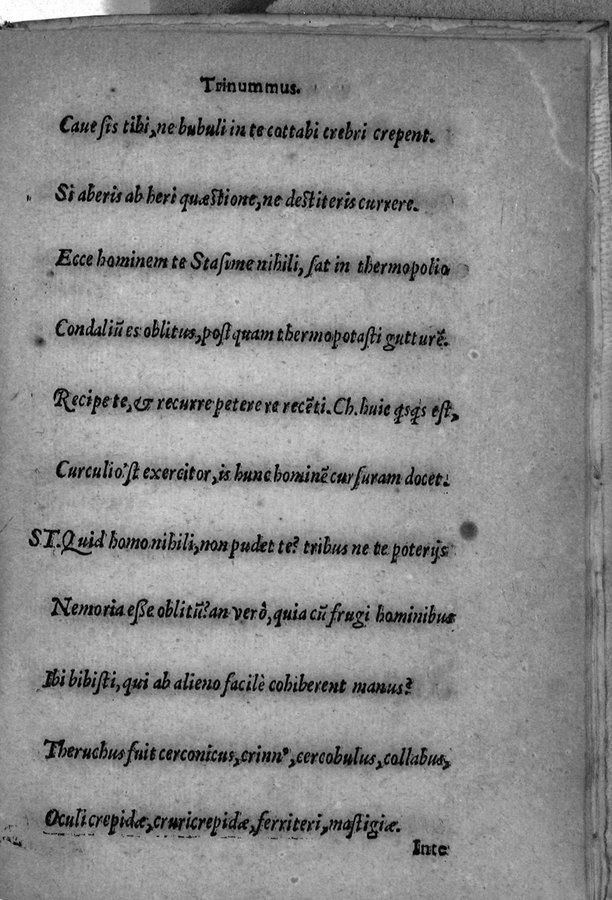 Trinummus.
Caue ſis tibi, ne bubuli in te cottabi crebri crepent.
Si aberis ab heri quæſtione, ne deſtiteris currere.
Ecce hominem te Staſime nihili, ſat in thermopolio
Condaliū es oblitus, poſt quam thermopotaſti gutturē.
Recipe te, & recurre petere re recēti. Ch. huic qſqs eſt,
Curculio'ſt exercitor, is hunc hominē curſuram docet.
ST. Quid homo nihili, non pudet te? tribus ne te poterijs
Nemoria eſſe oblitū? an verò, quia cū frugi hominibus
Ibi bibiſti, qui ab alieno facilè cohiberent manus?
Theruchus fuit cerconicus, crinnꝰ, cercobulus, collabus,
Oculicrepidæ, cruricrepidæ, ferriteri, maſtigiæ.
Inte